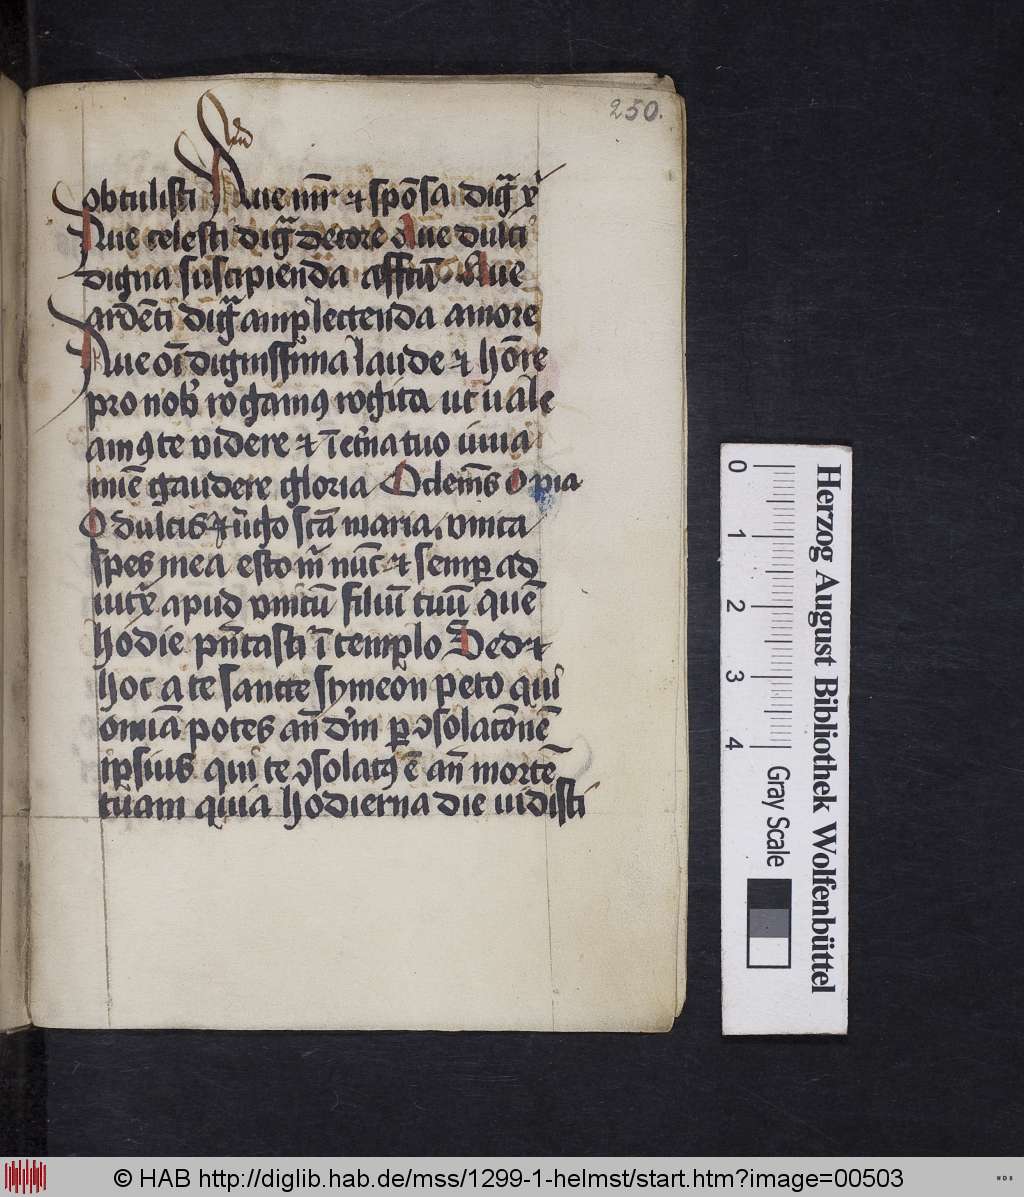 250.
obtulisti Aue mr̄ ⁊ spōsa digᷓ xp̄i
Aue celesti digᷓ decore Aue dulci
digna suscipienda affctū Aue
ardēti digᷓ amplectenda amore
Aue oī dignissima laude ⁊ honͦre
pro nobꝫ rogamꝰ rogita ut uale
amꝰ te videre ⁊ ī etͥna tuo iuua
mīe gaudere gloria O clemēs O pia
O dulcis ⁊ uͥgo scā maria, vnita
spes mea esto m̄ nūc ⁊ semꝑ ad
apud vnitū filiū tuū quē
hodie pn̄tasti ī templo Sed ⁊
hoc a te sancte symeon peto qui
omīa potes an̄ dm̄ ꝑ ꝯsolatōnē
ipsius qui te ꝯsolatꝰ ē an̄ mortē
tuam quia hodierna die uidisti
0 1 2 3 4
Herzog August Bibliothek Wolfenbüttel
Gray Scale
© HAB http://diglib.hab.de/mss/1299-1-helmst/start.htm?image=00503